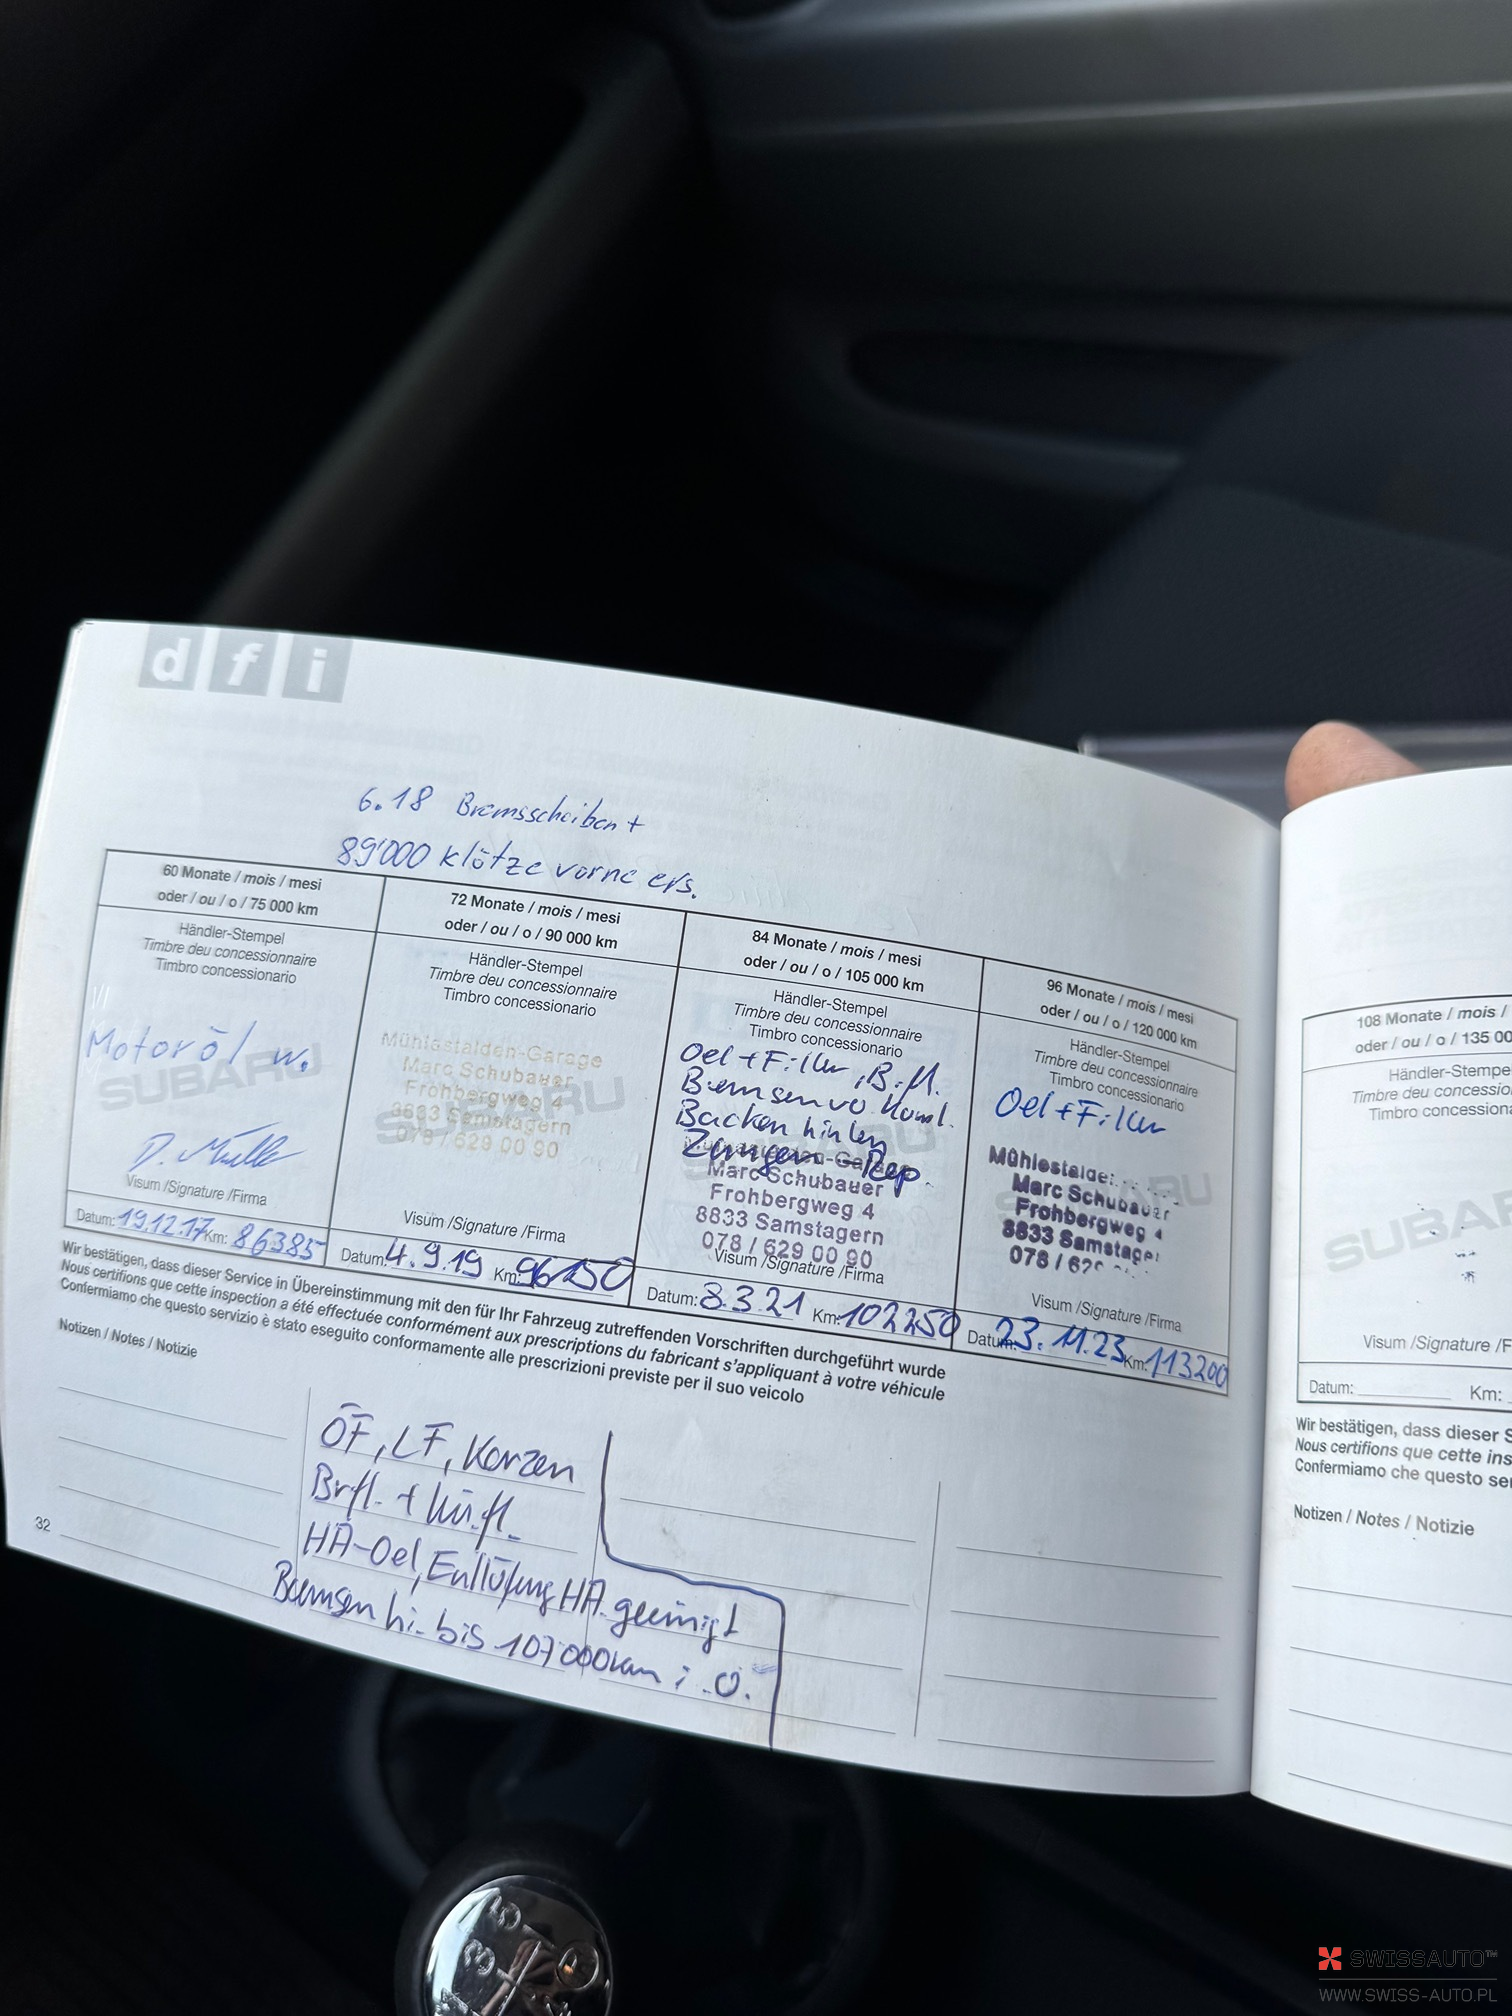 dfi
6.18 Bremsscheiben +
89'000 Klötze vorne ers.
60 Monate / mois / mesi
oder / ou / o / 75 000 km
Händler-Stempel
Timbre deu concessionnaire
Timbro concessionario
SUBARU
Motoröl w.
D. Müller
Visum /Signature /Firma
Datum: 19.12.17 Km: 86385
72 Monate / mois / mesi
oder / ou / o / 90 000 km
Händler-Stempel
Timbre deu concessionnaire
Timbro concessionario
SUBARU
Mühlestalden-Garage
Marc Schubauer
Frohbergweg 4
8833 Samstagern
078 / 629 00 90
Visum /Signature /Firma
Datum: 4.9.19 Km: 96150
84 Monate / mois / mesi
oder / ou / o / 105 000 km
Händler-Stempel
Timbre deu concessionnaire
Timbro concessionario
Oel + Filter, B.fl.
Bremsen vo
Backen hinten
Zangen-Rep.
Marc Schubauer
Frohbergweg 4
8833 Samstagern
078 / 629 00 90
Visum /Signature /Firma
Datum: 8.3.21 Km: 102250
96 Monate / mois / mesi
oder / ou / o / 120 000 km
Händler-Stempel
Timbre deu concessionnaire
Timbro concessionario
Oel + Filter
SUBARU
Marc Schubauer
Frohbergweg 4
8833
078 /
Visum /Signature /Firma
Datum: 23.11.23 Km: 113200
Wir bestätigen, dass dieser Service in Übereinstimmung mit den für Ihr Fahrzeug zutreffenden Vorschriften durchgeführt wurde
Nous certifions que cette inspection a été effectuée conformément aux prescriptions du fabricant s'appliquant à votre véhicule
Confermiamo che questo servizio è stato eseguito conformamente alle prescrizioni previste per il suo veicolo
Notizen / Notes / Notizie
ÖF, LF, Kerzen
Brfl. + Kü.fl.
HA-Oel, Entlüftung HA gereinigt
Bremsen hi. bis 107'000km i.O.
32
108 Monate / mois /
oder / ou / o / 135 00
Händler-Stempe
Timbre deu concession
Timbro concession
SUBARU
Visum /Signature /F
Datum: Km:
Wir bestätigen, dass dieser S
Nous certifions que cette ins
Confermiamo che questo se
Notizen / Notes / Notizie
5
3
SWISSAUTO™
WWW.SWISS-AUTO.PL